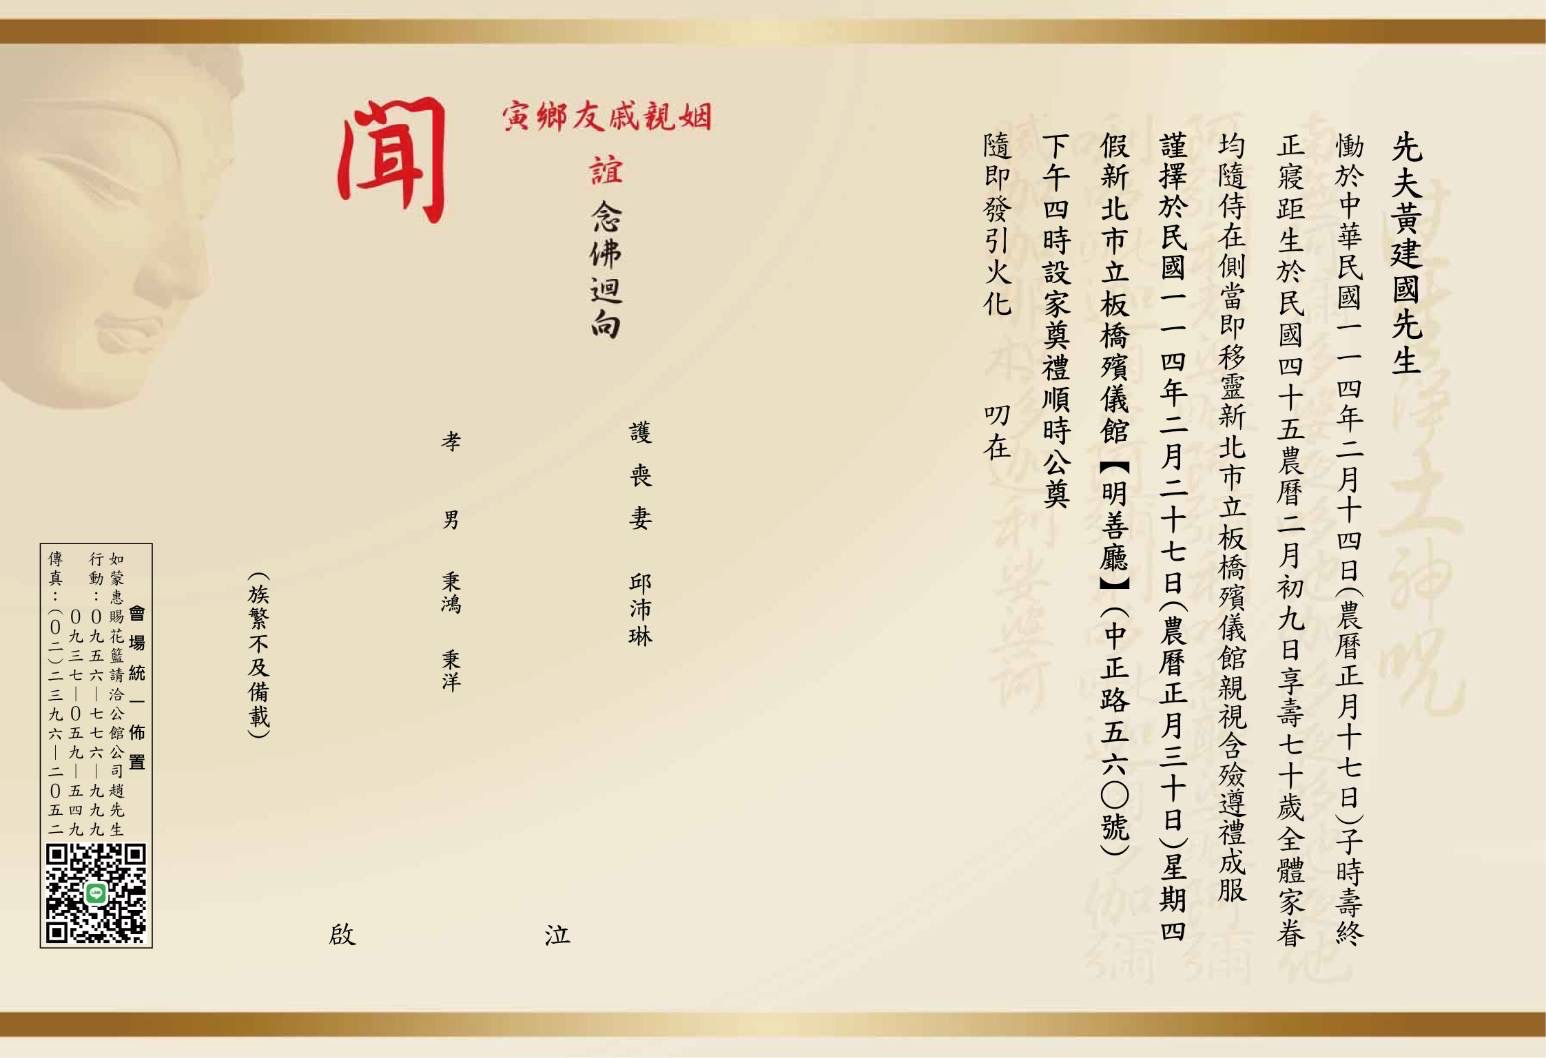 先夫黃建國先生
慟於中華民國一一四年二月十四日(農曆正月十七日)子時壽終
正寢距生於民國四十五農曆二月初九日享壽七十歲全體家眷
均隨侍在側當即移靈新北市立板橋殯儀館親視含殮遵禮成服
謹擇於民國一一四年二月二十七日(農曆正月三十日)星期四
假新北市立板橋殯儀館【明善廳】(中正路五六〇號)
下午四時設家奠禮順時公奠
隨即發引火化 叨在
姻親戚友鄉寅
誼念佛迴向
聞
護喪妻 邱沛琳
孝男 秉鴻 秉洋
(族繁不及備載)
泣
啟
會場統一佈置
如蒙惠賜花籃請洽公館公司趙先生
行動:0九五六—七七六—九九九
0九三七—0五九—五四九
傳真:(0二)二三九六—二0五二
往生淨土神咒